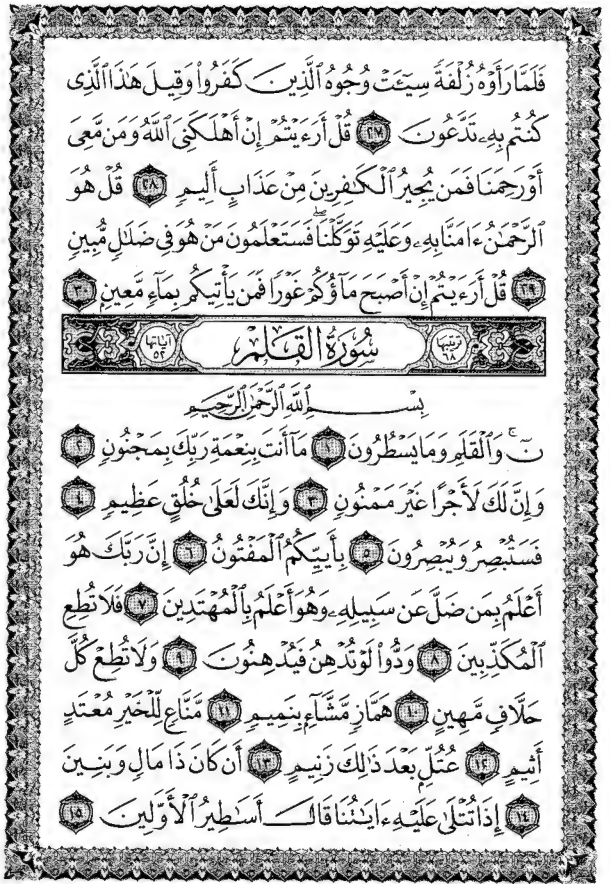 فَلَمَّا رَأَوْهُ زُلْفَةً سِيٓـَٔتْ وُجُوهُ ٱلَّذِينَ كَفَرُوا۟ وَقِيلَ هَـٰذَا ٱلَّذِى
كُنتُم بِهِۦ تَدَّعُونَ ٢٧ قُلْ أَرَءَيْتُمْ إِنْ أَهْلَكَنِىَ ٱللَّهُ وَمَن مَّعِىَ
أَوْ رَحِمَنَا فَمَن يُجِيرُ ٱلْكَـٰفِرِينَ مِنْ عَذَابٍ أَلِيمٍ ٢٨ قُلْ هُوَ
ٱلرَّحْمَـٰنُ ءَامَنَّا بِهِۦ وَعَلَيْهِ تَوَكَّلْنَا ۖ فَسَتَعْلَمُونَ مَنْ هُوَ فِى ضَلَـٰلٍ مُّبِينٍ
٢٩ قُلْ أَرَءَيْتُمْ إِنْ أَصْبَحَ مَآؤُكُمْ غَوْرًا فَمَن يَأْتِيكُم بِمَآءٍ مَّعِينٍ ٣٠
ترتيبها ٦٨ سُورَةُ الْقَلَمِ آياتها ٥٢
بِسْمِ ٱللَّهِ ٱلرَّحْمَـٰنِ ٱلرَّحِيمِ
نٓ ۚ وَٱلْقَلَمِ وَمَا يَسْطُرُونَ ١ مَآ أَنتَ بِنِعْمَةِ رَبِّكَ بِمَجْنُونٍ ٢
وَإِنَّ لَكَ لَأَجْرًا غَيْرَ مَمْنُونٍ ٣ وَإِنَّكَ لَعَلَىٰ خُلُقٍ عَظِيمٍ ٤
فَسَتُبْصِرُ وَيُبْصِرُونَ ٥ بِأَييِّكُمُ ٱلْمَفْتُونُ ٦ إِنَّ رَبَّكَ هُوَ
أَعْلَمُ بِمَن ضَلَّ عَن سَبِيلِهِۦ وَهُوَ أَعْلَمُ بِٱلْمُهْتَدِينَ ٧ فَلَا تُطِعِ
ٱلْمُكَذِّبِينَ ٨ وَدُّوا۟ لَوْ تُدْهِنُ فَيُدْهِنُونَ ٩ وَلَا تُطِعْ كُلَّ
حَلَّافٍ مَّهِينٍ ١٠ هَمَّازٍ مَّشَّآءٍۭ بِنَمِيمٍ ١١ مَّنَّاعٍ لِّلْخَيْرِ مُعْتَدٍ
أَثِيمٍ ١٢ عُتُلٍّۭ بَعْدَ ذَٰلِكَ زَنِيمٍ ١٣ أَن كَانَ ذَا مَالٍ وَبَنِينَ
١٤ إِذَا تُتْلَىٰ عَلَيْهِ ءَايَـٰتُنَا قَالَ أَسَـٰطِيرُ ٱلْأَوَّلِينَ ١٥